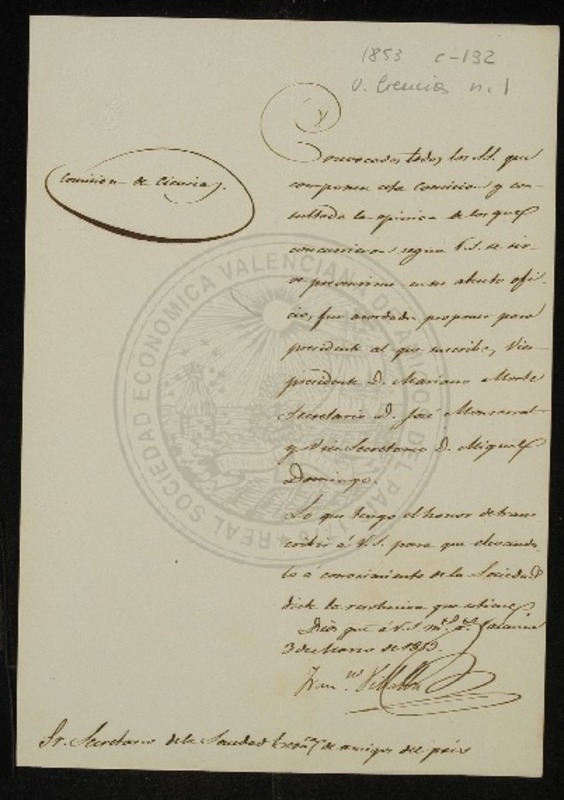 1853 c-132
V. Ciencias n. 1
Comision de Ciencias.
Convocados todos los SS. que
componen esta Comision y con-
sultada la opinion de los que
concurrieron segun V.S. se sir-
ve prevenirme en su atento ofi-
cio, fue acordado proponer para
presidente al que suscribe, Vice-
presidente D. Mariano
Secretario D. José Monserrat
y Vice Secretario D. Miguel
Domingo.
Lo que tengo el honor de trans-
cribir á V.S. para que elevando-
lo á conocimiento de la Sociedad
dicte la resolucion que estime.
Dios gue á V.S. ms. as. Valencia
3 de Marzo de 1853.
Sr. Secretario de la Sociedad de amigos del pais
REAL SOCIEDAD ECONOMICA VALENCIANA DE AMIGOS DEL PAIS